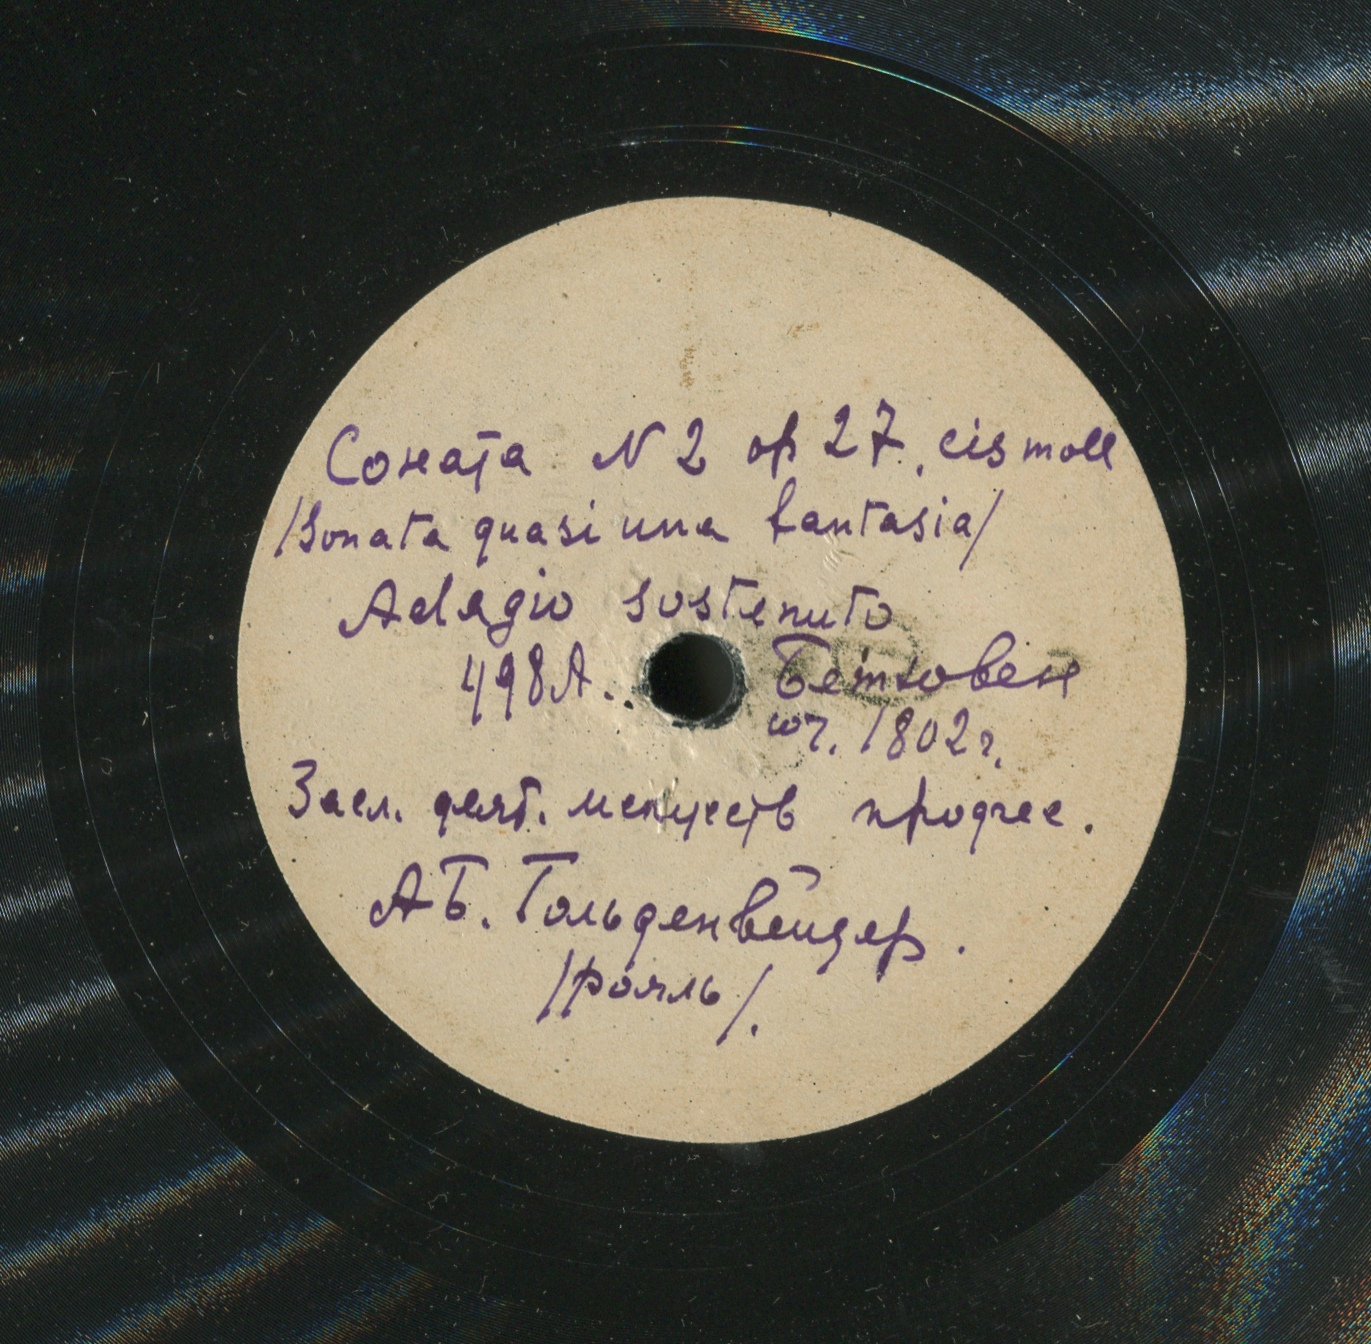 Соната N 2 op 27, cis moll
/Sonata quasi una fantasia/
Adagio sostenuto
498А. Бетховен
соч. 1802 г.
Засл. деят. искусств професс.
АБ. Гольденвейзер.
/рояль/.